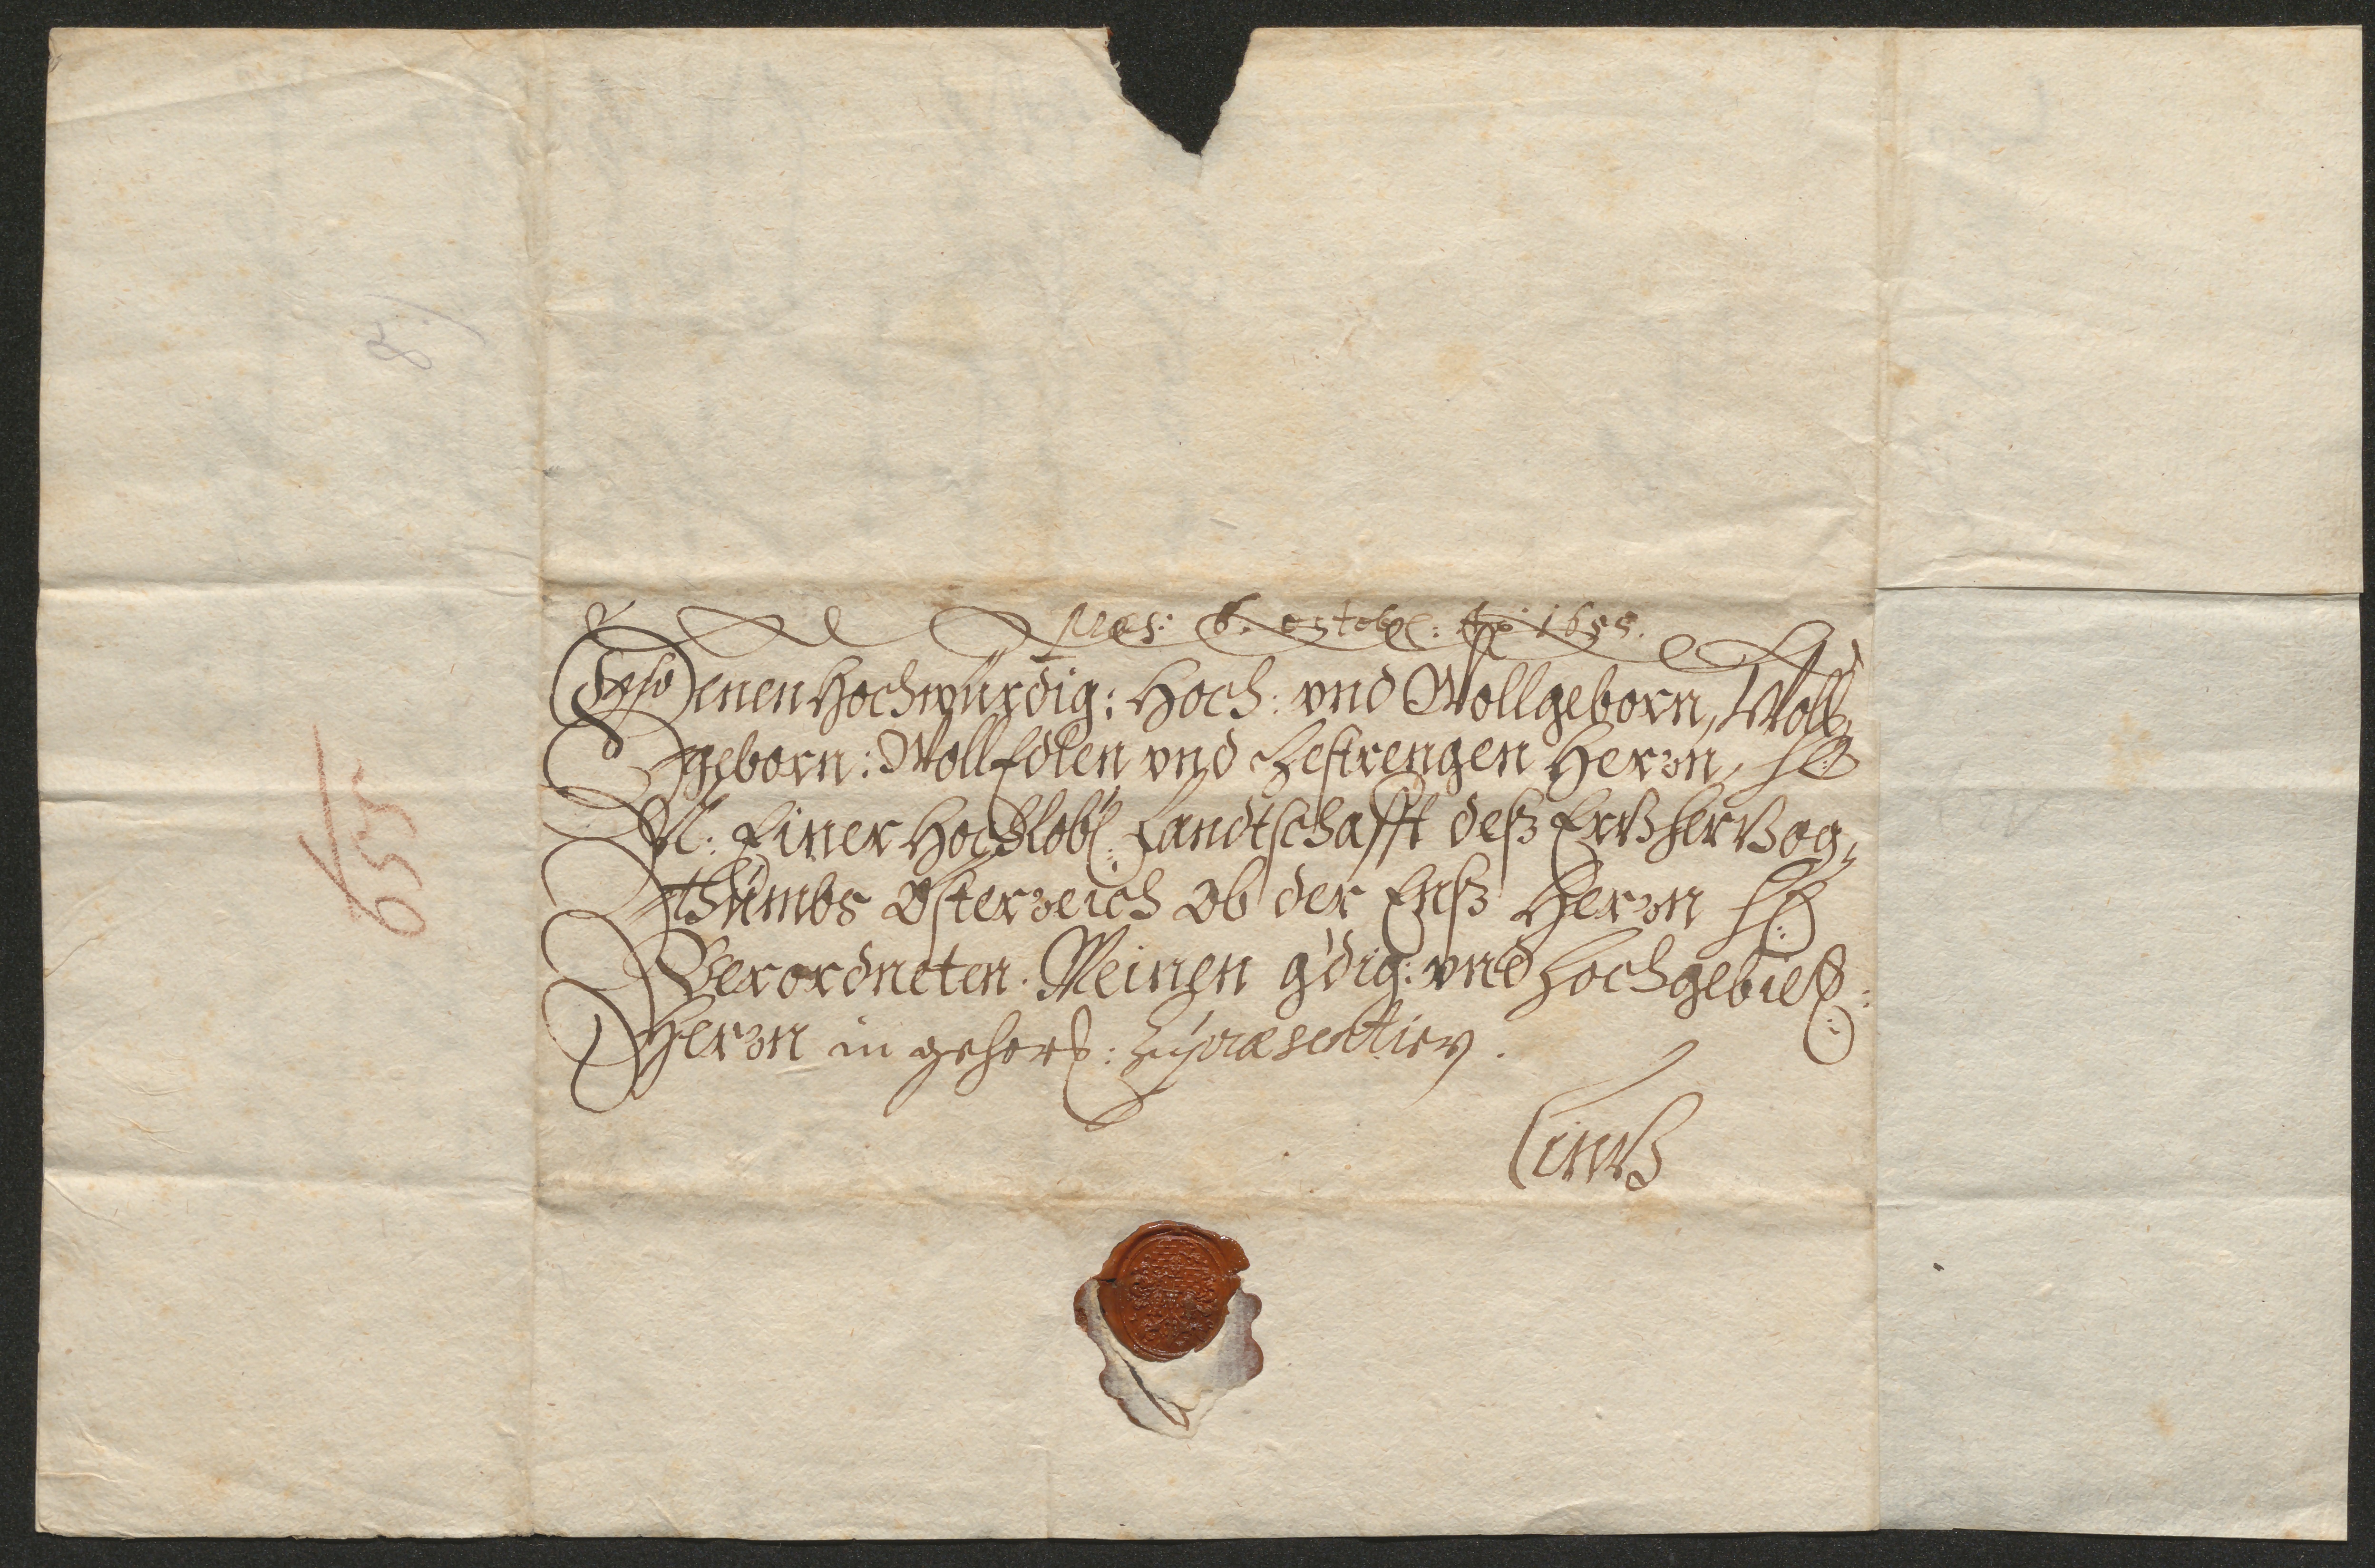 præs: 6. octobr: Ao 1655.
Denen Hochwürdig: Hoch: vnd Wollgeborn, Woll,
geborn: WollEdlen vnd Gestrengen Herrn,
N: Einer Hochlobl: Landtschafft deß Ertzhertzog,
thumbs Österreich ob der Enß Herrn
Verordneten. Meinen g'dig: vnd hochgebiet:
Herrn in gehors: zu præsentirn.
Lintz
655
8)